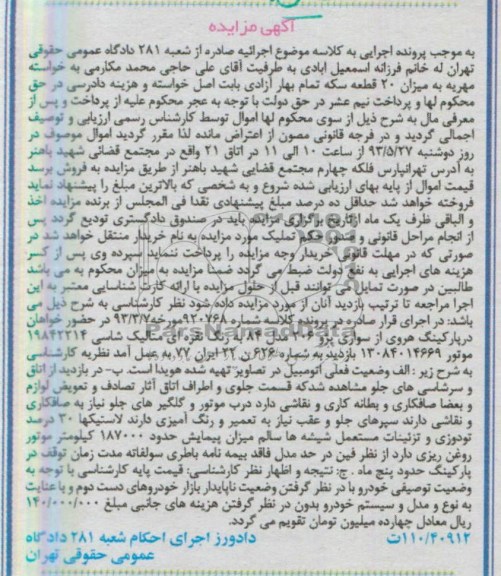 آگهی مزایده
به موجب پرونده اجرایی به کلاسه موضوع اجرائیه صادره از شعبه ۲۸۱ دادگاه عمومی حقوقی
تهران له خانم فرزانه اسمعیل ابادی به طرفیت آقای علی حاجی محمد مکارمی به خواسته
مهریه به میزان ۲۰ قطعه سکه تمام بهار آزادی بابت اصل خواسته و هزینه دادرسی در حق
محکوم لها و پرداخت نیم عشر در حق دولت با توجه به عجز محکوم علیه از پرداخت و پس از
معرفی مال به شرح ذیل از سوی محکوم لها اموال توسط کارشناس رسمی ارزیابی و توصیف
اجمالی گردید و در فرجه قانونی مصون از اعتراض مانده لذا مقرر گردید اموال موصوف در
روز دوشنبه ۹۳/۵/۲۷ از ساعت ۱۰ الی ۱۱ در اتاق ۲۱ واقع در مجتمع قضائی شهید باهنر
به آدرس تهرانپارس فلکه چهارم مجتمع قضایی شهید باهنر از طریق مزایده به فروش برسد
قیمت اموال از پایه بهای ارزیابی شده شروع و به شخصی که بالاترین مبلغ را پیشنهاد نماید
فروخته خواهد شد حداقل ده درصد مبلغ پیشنهادی نقدا فی المجلس از برنده مزایده اخذ
و الباقی ظرف یک ماه ازتاریخ برگزاری مزایده باید در صندوق دادگستری تودیع گردد پس
از انجام مراحل قانونی و صدور حکم تملیک مورد مزایده به نام خریدار منتقل خواهد شد در
صورتی که در مهلت قانونی خریدار وجه مزایده را پرداخت ننماید سپرده وی پس از کسر
هزینه های اجرایی به نفع دولت ضبط می گردد ضمنا مزایده به میزان محکوم به می باشد
طالبین در صورت تمایل می توانند قبل از حلول مزایده با ارائه کارت شناسایی معتبر به این
اجرا مراجعه تا ترتیب بازدید آنان از مورد مزایده داده شود نظر کارشناسی به شرح ذیل می
باشد: در اجرای قرار صادره در پرونده کلاسه شماره ۹۲۰۷۶۸ مورخه ۹۳/۳/۷ در حضور خواهان
درپارکینگ هروی از سواری پژو ۲۰۶ مدل ۸۴ به رنگ نقره ای متالیک شاسی ۱۹۸۴۲۳۱۴
موتور ۱۳۰۸۴۰۱۴۶۶۹ بازدید به شماره ۶۲۶ ن ۲۲ ایران ۷۷ به عمل آمد نظریه کارشناسی
به شرح زیر : الف وضعیت فعلی اتومبیل در تصاویر تهیه شده هویدا است. ب- در بازدید از اتاق
و سرشاسی های جلو مشاهده شدکه قسمت جلوی و اطراف اتاق آثار تصادف و تعویض لوازم
و بعضا صافکاری و بطانه کاری و نقاشی دارد درب موتور و گلگیر های جلو نیاز به صافکاری
و نقاشی دارند سپرهای جلو و عقب نیاز به تعمیر و رنگ آمیزی دارند لاستیکها ۳۰ درصد
تودوزی و تزئینات مستعمل شیشه ها سالم میزان پیمایش حدود ۱۸۷۰۰۰ کیلومتر موتور
روغن ریزی دارد از نظر فین در حد مدل فاقد بیمه نامه باطری سولفاته مدت زمان توقف در
پارکینگ حدود پنج ماه . ج: نتیجه و اظهار نظر کارشناسی: قیمت پایه کارشناسی با توجه به
وضعیت توصیفی خودرو با در نظر گرفتن وضعیت ناپایدار بازار خودروهای دست دوم و با عنایت
به نوع و مدل و سیستم خودرو بدون در نظر گرفتن هزینه های جانبی مبلغ ۱۴۰/۰۰۰/۰۰۰
ریال معادل چهارده میلیون تومان تقویم می گردد.
۱۱۰/۴۰۹۱۲ت دادورز اجرای احکام شعبه ۲۸۱ دادگاه
عمومی حقوقی تهران